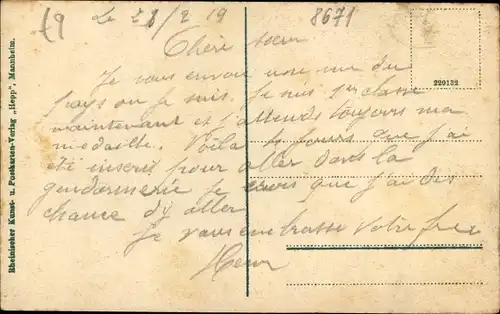 19
Le 28/2 19
8671
Chère sœur
Je vous envoie une vue du
pays ou je suis. Je suis 1er classe
maintenant et j'attends toujours ma
médaille. Voilà jours que j'ai
été inscris pour aller dans la
gendarmerie je crois que j'ai des
chance d'y aller
Je vous embrasse Votre frère
220132
Rheinischer Kunst- u. Postkarten-Verlag „Hepp", Mannheim.